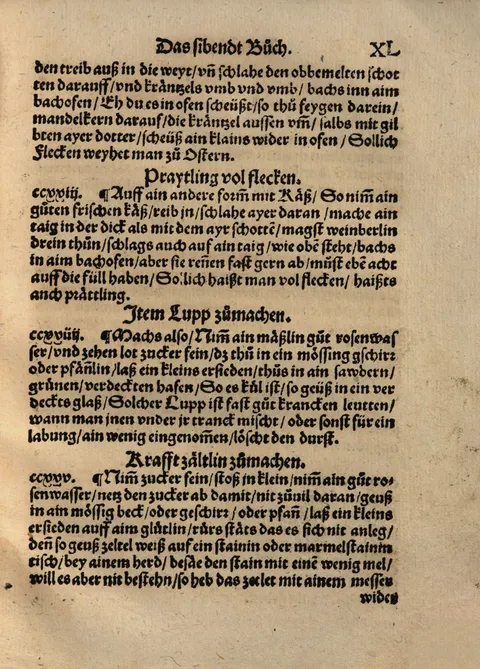 Das sibendt Bůch. XL
den treib auß in die weyt/ vñ schlahe den obbemelten schot
ten darauff/ vnd kräntzels vmb vnd vmb/ bachs inn aim
bachofen/ Eh du es in ofen scheüßt/ so thů feygen darein/
mandelkern darauf/ die kräntzel aussen vm̃/ salbs mit gil
bten ayer dotter/ scheüß ain klains wider in ofen/ Sollich
Flecken weyhet man zů Ostern.
Praytling vol flecken.
ccxxiij. ¶Auff ain andere form̃ mit Käß/ So nim̃ ain
gůten frischen käß/ reib jn/ schlahe ayer daran/ mache ain
taig in der dick als mit dem ayr schottẽ/ magst weinberlin
drein thůn/ schlags auch auf ain taig/ wie obẽ steht/ bachs
in aim bachofen/ aber sie reñen fast gern ab/ můst ebẽ acht
auff die füll haben/ Sollich haißt man vol flecken/ haißts
auch prättling.
Item Lupp zůmachen.
ccxxiiij. ¶Machs also/ Nim̃ ain mäßlin gůt rosenwas
ser/ vnd zehen lot zucker fein/ dz thů in ein mössing gschirr
oder pfäñlin/ laß ein kleins ersieden/ thůs in ain sawbern/
grůnen/ verdeckten hafen/ So es kůl ist/ so geüß in ein ver
deckts glaß/ Solcher Lupp ist fast gůt krancken leutten/
wann man jnen vnder jr tranck mischt/ oder sonst für ein
labung/ ain wenig eingenom̃en/ löscht den durst.
Krafft zältlin zůmachen.
ccxxv. ¶Nim̃ zucker fein/ stoß in klein/ nim̃ ain gůt ro⸗
senwasser/ netz den zucker ab damit/ nit zůuil daran/ geuß
in ain mössig beck/ oder geschirr/ oder pfañ/ laß ein kleins
ersieden auff aim glůtlin/ rürs stäts das es sich nit anleg/
deñ so geuß zeltel weiß auf ein stainin oder marmelstainin
tisch/ bey ainem herd/ besäe den stain mit einẽ wenig mel/
will es aber nit bestehn/ so heb das zeltel mit ainem messer
wider